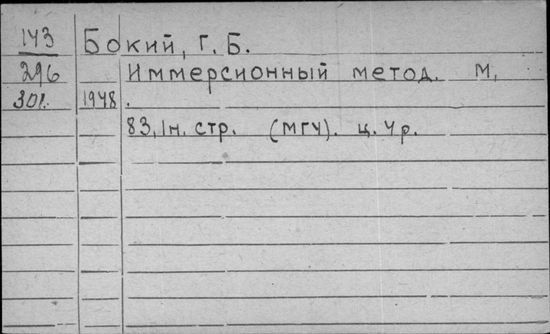 143 Бокий, Г. Б.
296 Иммерсионный метод. М,
301. 1948.
83, 1н. стр. (МГУ). ц. 4р.